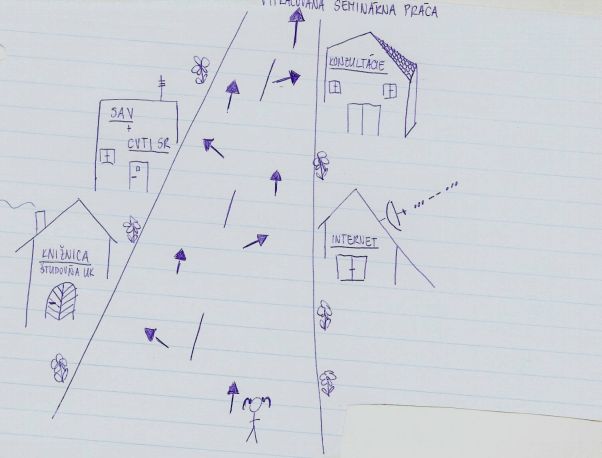 VYPRACOVANÁ SEMINÁRNA PRÁCA
KONZULTÁCIE
SAV
+
CVTI SR
INTERNET
KNIŽNICA
ŠTUDOVŇA UK